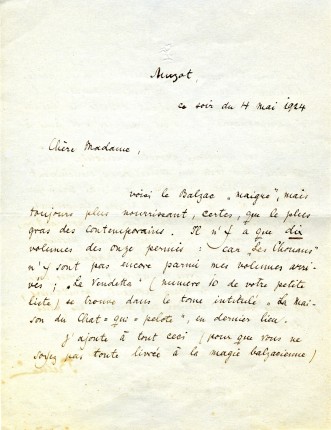 Muzot,
ce soir du 4 mai 1924
Chère Madame,
voici le Balzac „maigre", mais
toujours plus nourrissant, certes, que le plus
gras des contemporains. Il n'y a que dix
volumes des onze permis : car „Les Chouans"
n'y sont pas encore parmi mes volumes arri-
vés ; „La Vendetta" (numéro 10 de votre petite
liste) se trouve dans le tome intitulé „La Mai-
son du Chat-qui-pelote", en dernier lieu.
J'ajoute à tout ceci (pour que vous ne
soyez pas toute livrée à la magie balzacienne)